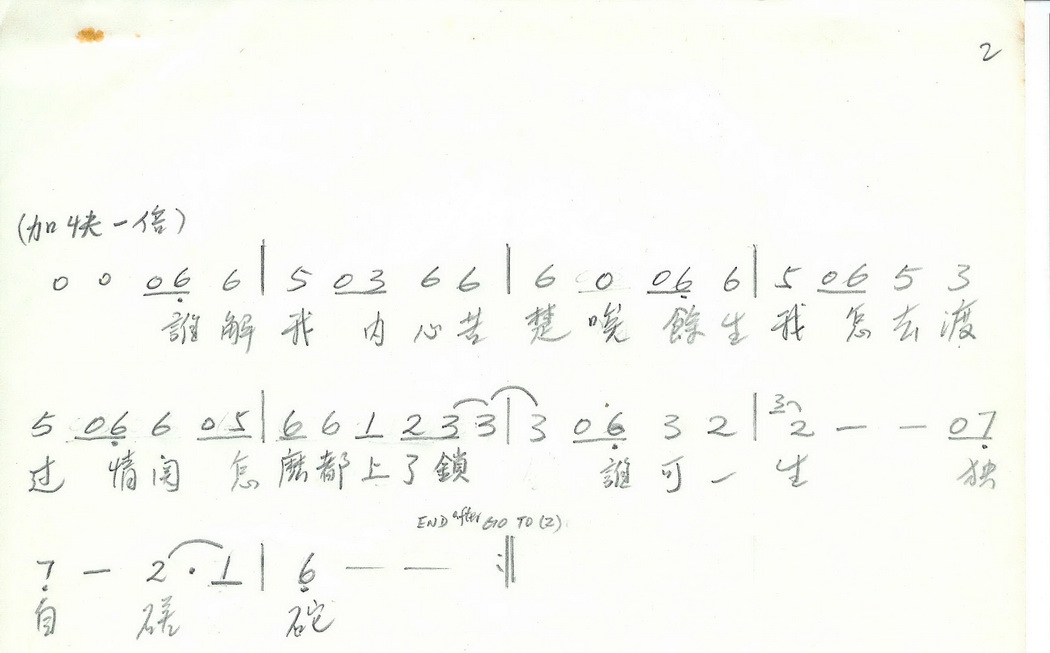 2
(加快一倍)
0 0 06 6 | 5 03 6 6 | 6 0 06 6 | 5 06 5 3
誰解我内心苦楚唉餘生我怎去渡
5 06 6 05 | 6 6 1 2 3 3 | 3 06 3 2 | 3 2 — — 07
过情関怎麽都上了鎖誰可一生独
END after GO TO (2)
7 — 2 · 1 | 6 — — :||
自磋砣